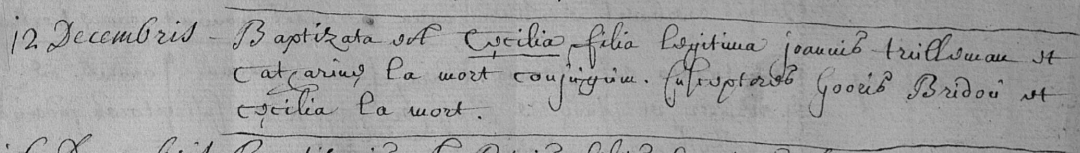 12 Decembris - Baptizata est Cęcilia filia legitima joannis trulleman et
Catharinę la mort conjugum. susceptores Gooris Bridou et
cęcilia la mort.